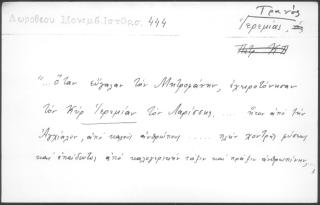 Δωροθέου Μονεμβ. Ιστορ. 444
Τρανός
Ἱερεμίας,
"... ὅταν εὔγαλαν τὸν Μητροφάνην, ἐχειροτόνησαν
τὸν Κὺρ Ἱερεμίαν τὸν Λαρίσσης, .... ἦτον ἀπὸ τὴν
Ἀγχίαλον, ἀπὸ καλοὺς ἀνθρώπους ...... πλὴν χοντρὸς φύσεως
καὶ ἀπαίδευτος ἀπὸ καλογερικὴν τάξιν καὶ πρᾶξιν ἀνθρωπίνην, ...